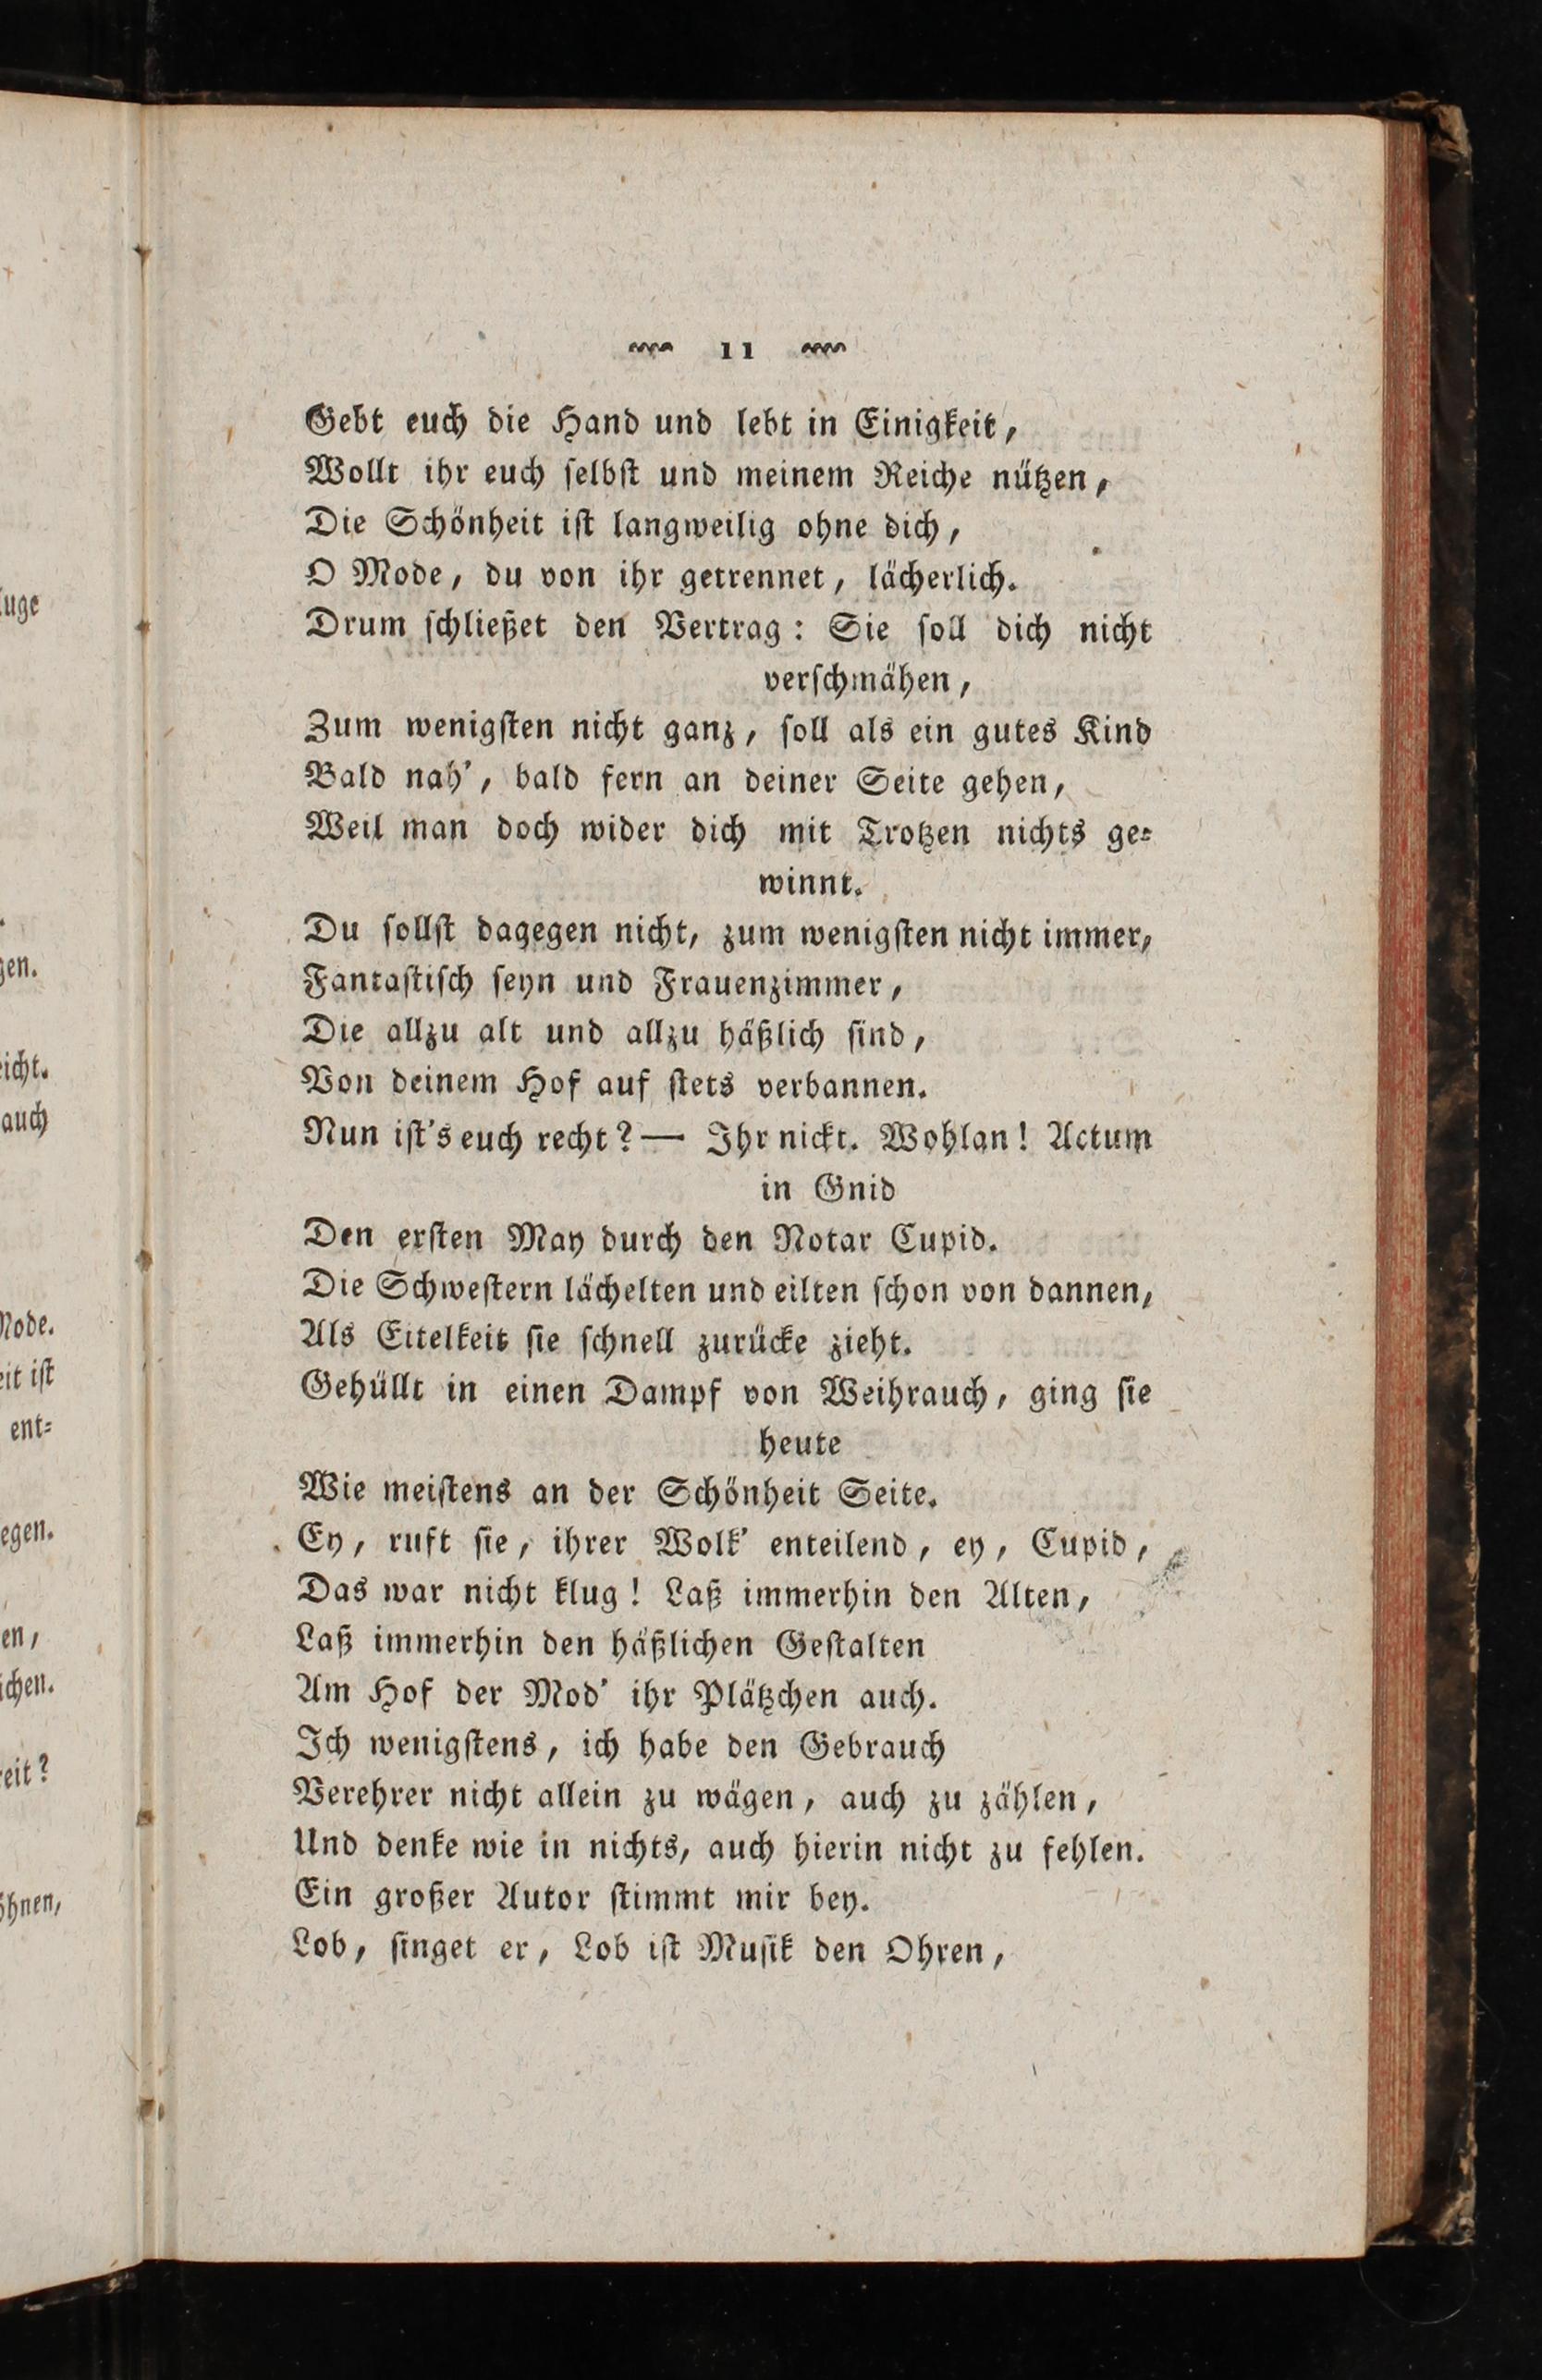 11
Gebt euch die Hand und lebt in Einigkeit,
Wollt ihr euch ſelbſt und meinem Reiche nützen,
Die Schönheit iſt langweilig ohne dich,
O Mode, du von ihr getrennet, lächerlich.
Drum ſchließet den Vertrag: Sie ſoll dich nicht
verſchmähen,
Zum wenigſten nicht ganz, ſoll als ein gutes Kind
Bald nah', bald fern an deiner Seite gehen,
Weil man doch wider dich mit Trotzen nichts ge-
winnt.
Du ſollſt dagegen nicht, zum wenigſten nicht immer,
Fantaſtiſch ſeyn und Frauenzimmer,
Die allzu alt und allzu häßlich ſind,
Von deinem Hof auf ſtets verbannen.
Nun iſt's euch recht? — Ihr nickt. Wohlan! Actum
in Gnid
Den erſten May durch den Notar Cupid.
Die Schweſtern lächelten und eilten ſchon von dannen,
Als Eitelkeit ſie ſchnell zurücke zieht.
Gehüllt in einen Dampf von Weihrauch, ging ſie
heute
Wie meiſtens an der Schönheit Seite.
Ey, ruft ſie, ihrer Wolk' enteilend, ey, Cupid,
Das war nicht klug! Laß immerhin den Alten,
Laß immerhin den häßlichen Geſtalten
Am Hof der Mod' ihr Plätzchen auch.
Ich wenigſtens, ich habe den Gebrauch
Verehrer nicht allein zu wägen, auch zu zählen,
Und denke wie in nichts, auch hierin nicht zu fehlen.
Ein großer Autor ſtimmt mir bey.
Lob, ſinget er, Lob iſt Muſik den Ohren,
uge
gen.
icht.
auch
Mode.
eit iſt
ent-
egen.
en,
ichen.
eit?
öhnen,